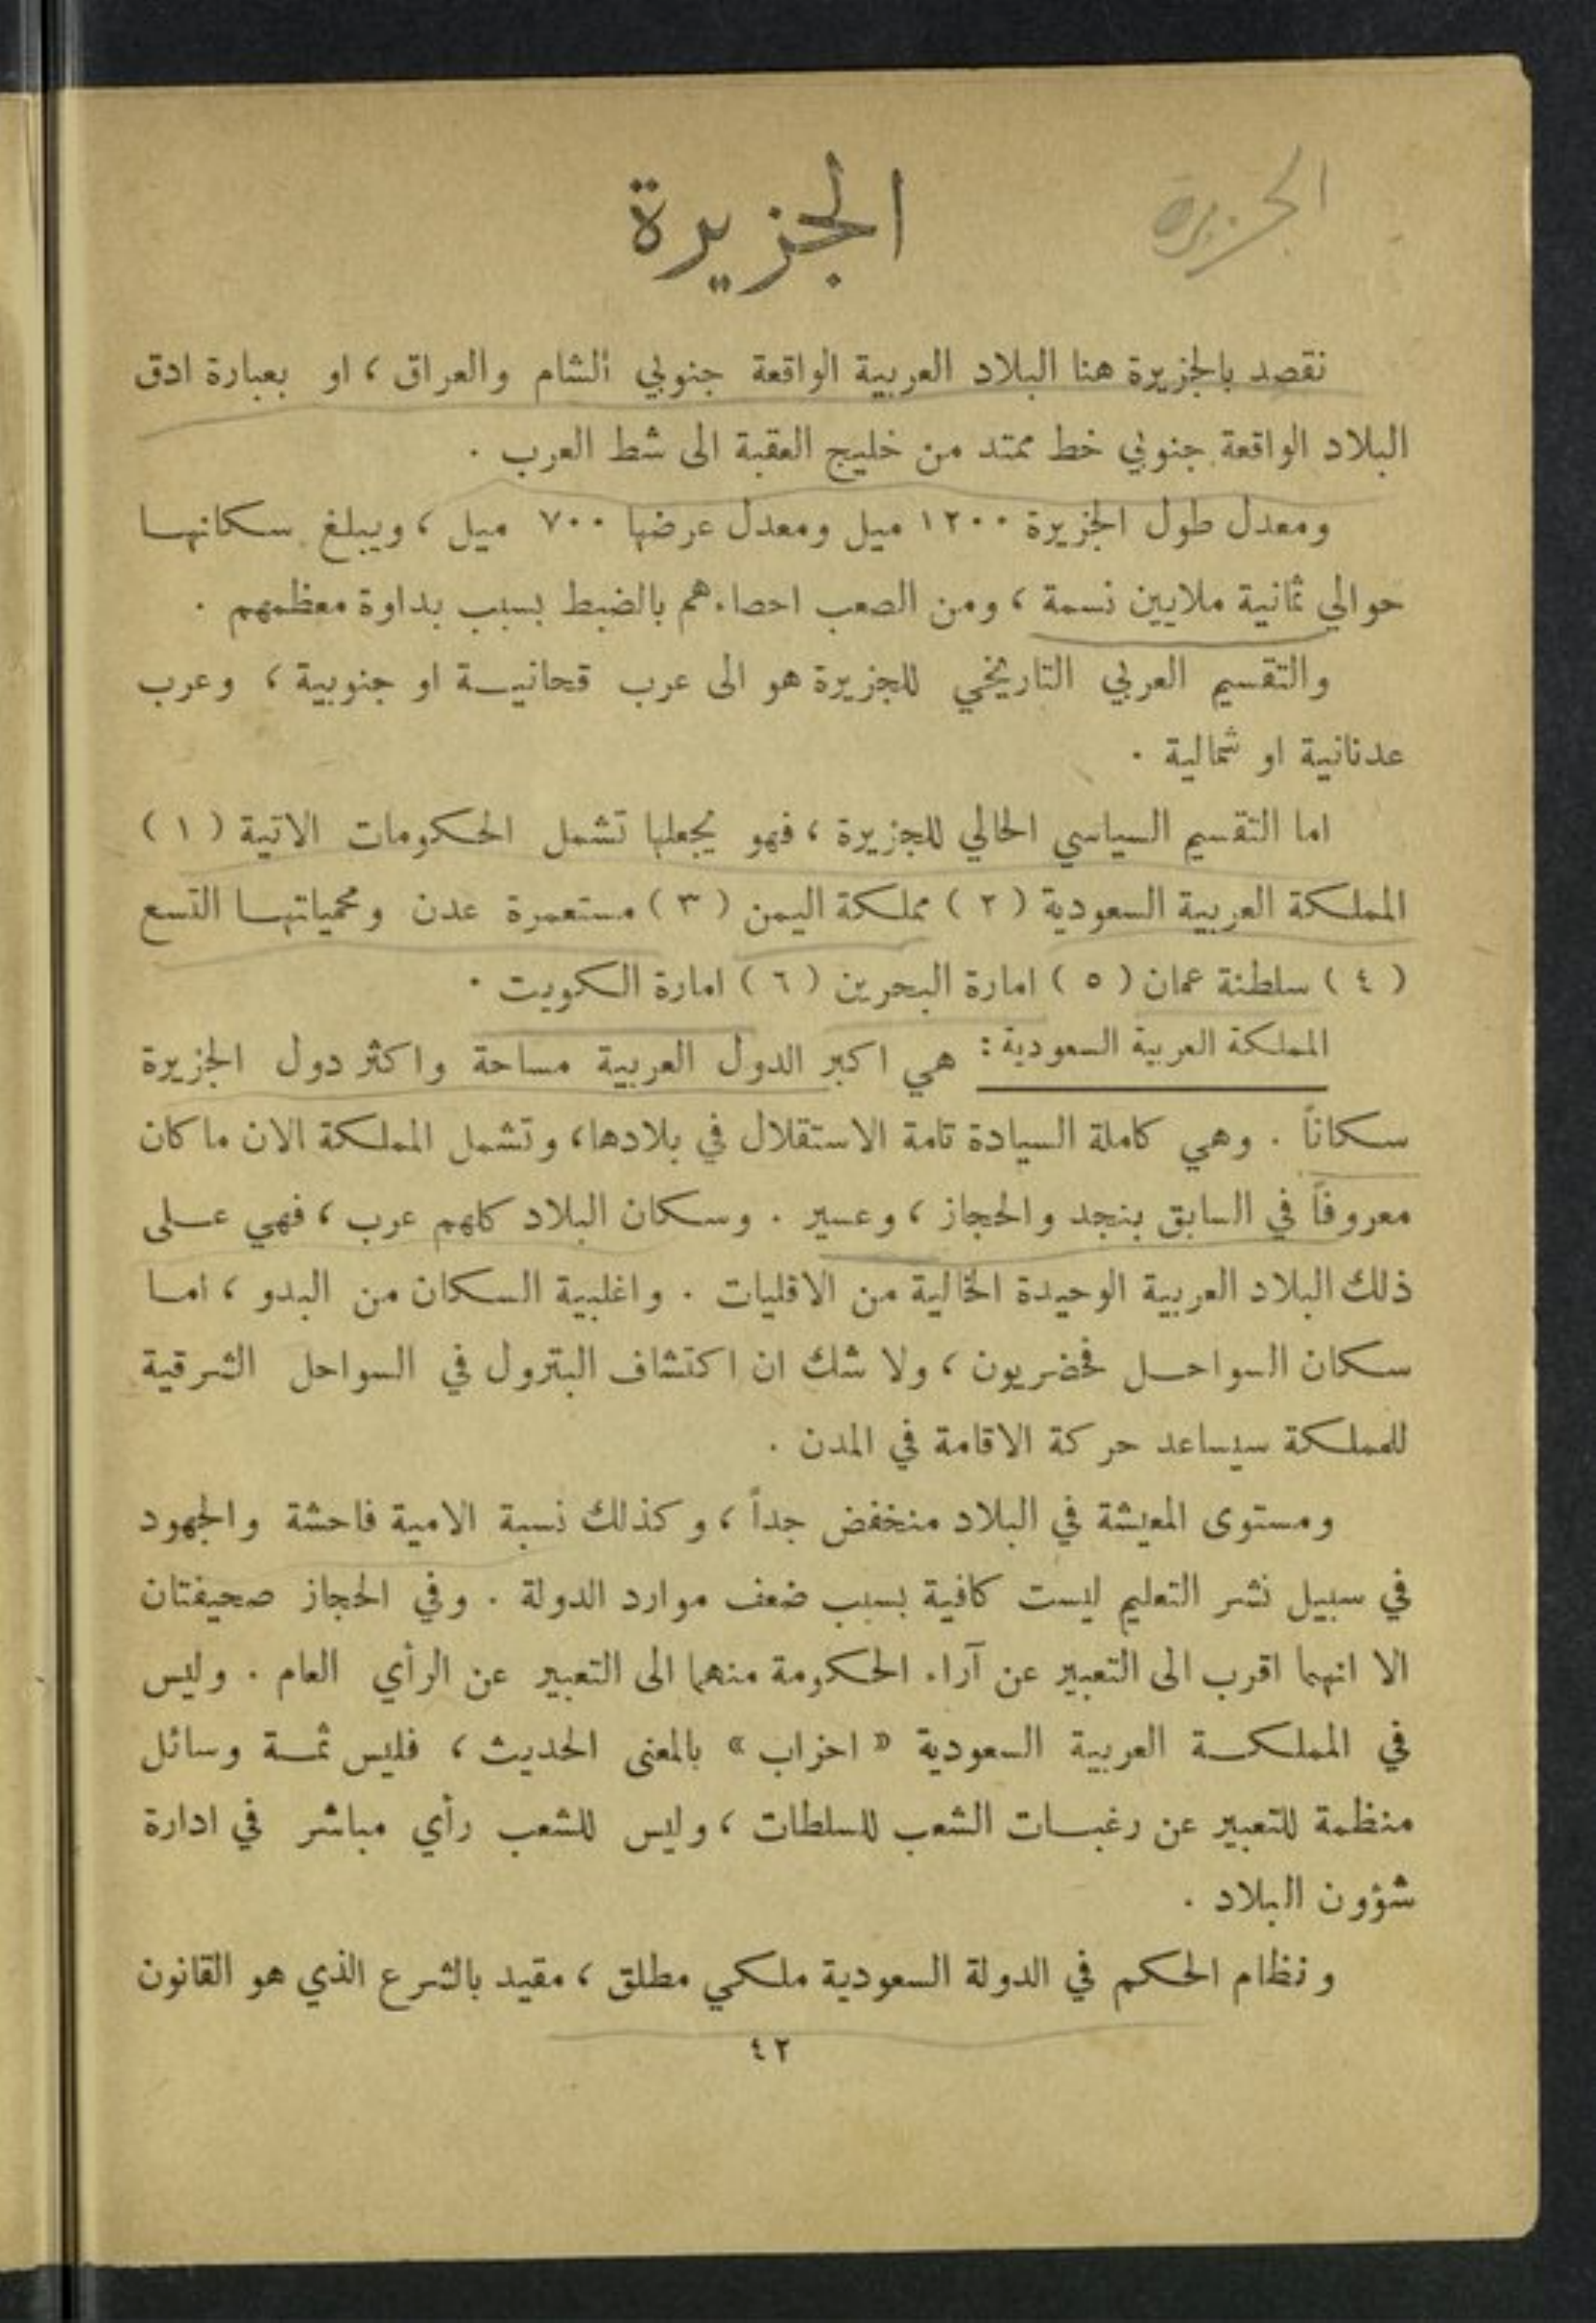 الجزيرة
الجزيرة
نقصد بالجزيرة هنا البلاد العربية الواقعة جنوبي الشام والعراق ، او بعبارة ادق
البلاد الواقعة جنوبي خط ممتد من خليج العقبة الى شط العرب .
ومعدل طول الجزيرة ١٢٠٠ ميل ومعدل عرضها ٧٠٠ ميل ، ويبلغ سكانها
حوالي ثمانية ملايين نسمة ، ومن الصعب احصاءهم بالضبط بسبب بداوة معظمهم .
والتقسيم العربي التاريخي للجزيرة هو الى عرب قحانيـة او جنوبية ، وعرب
عدنانية او شمالية .
اما التقسيم السياسي الحالي للجزيرة ، فهو يجعلها تشمل الحكومات الاتية ( ١ )
المملكة العربية السعودية ( ٢ ) مملكة اليمن ( ٣ ) مستعمرة عدن ومحمياتهـا التسع
( ٤ ) سلطنة عمان ( ٥ ) امارة البحرين ( ٦ ) امارة الكويت .
المملكة العربية السعودية : هي اكبر الدول العربية مساحة واكثر دول الجزيرة
سكاناً . وهي كاملة السيادة تامة الاستقلال في بلادها ، وتشمل المملكة الان ما كان
معروفاً في السابق بنجد والحجاز ، وعسير . وسكان البلاد كلهم عرب ، فهي عـلى
ذلك البلاد العربية الوحيدة الخالية من الاقليات . واغلبية السكان من البدو ، امـا
سكان السواحـل فحضريون ، ولا شك ان اكتشاف البترول في السواحل الشرقية
للمملكة سيساعد حركة الاقامة في المدن .
ومستوى المعيشة في البلاد منخفض جداً ، وكذلك نسبة الامية فاحشة والجهود
في سبيل نشر التعليم ليست كافية بسبب ضعف موارد الدولة . وفي الحجاز صحيفتان
الا انهما اقرب الى التعبير عن آراء الحكومة منهما الى التعبير عن الرأي العام . وليس
في المملكـة العربية السعودية « احزاب » بالمعنى الحديث ، فليس ثمـة وسائل
منظمة للتعبير عن رغبـات الشعب للسلطات ، وليس للشعب رأي مباشر في ادارة
شؤون البلاد .
ونظام الحكم في الدولة السعودية ملكي مطلق ، مقيد بالشرع الذي هو القانون
٤٢